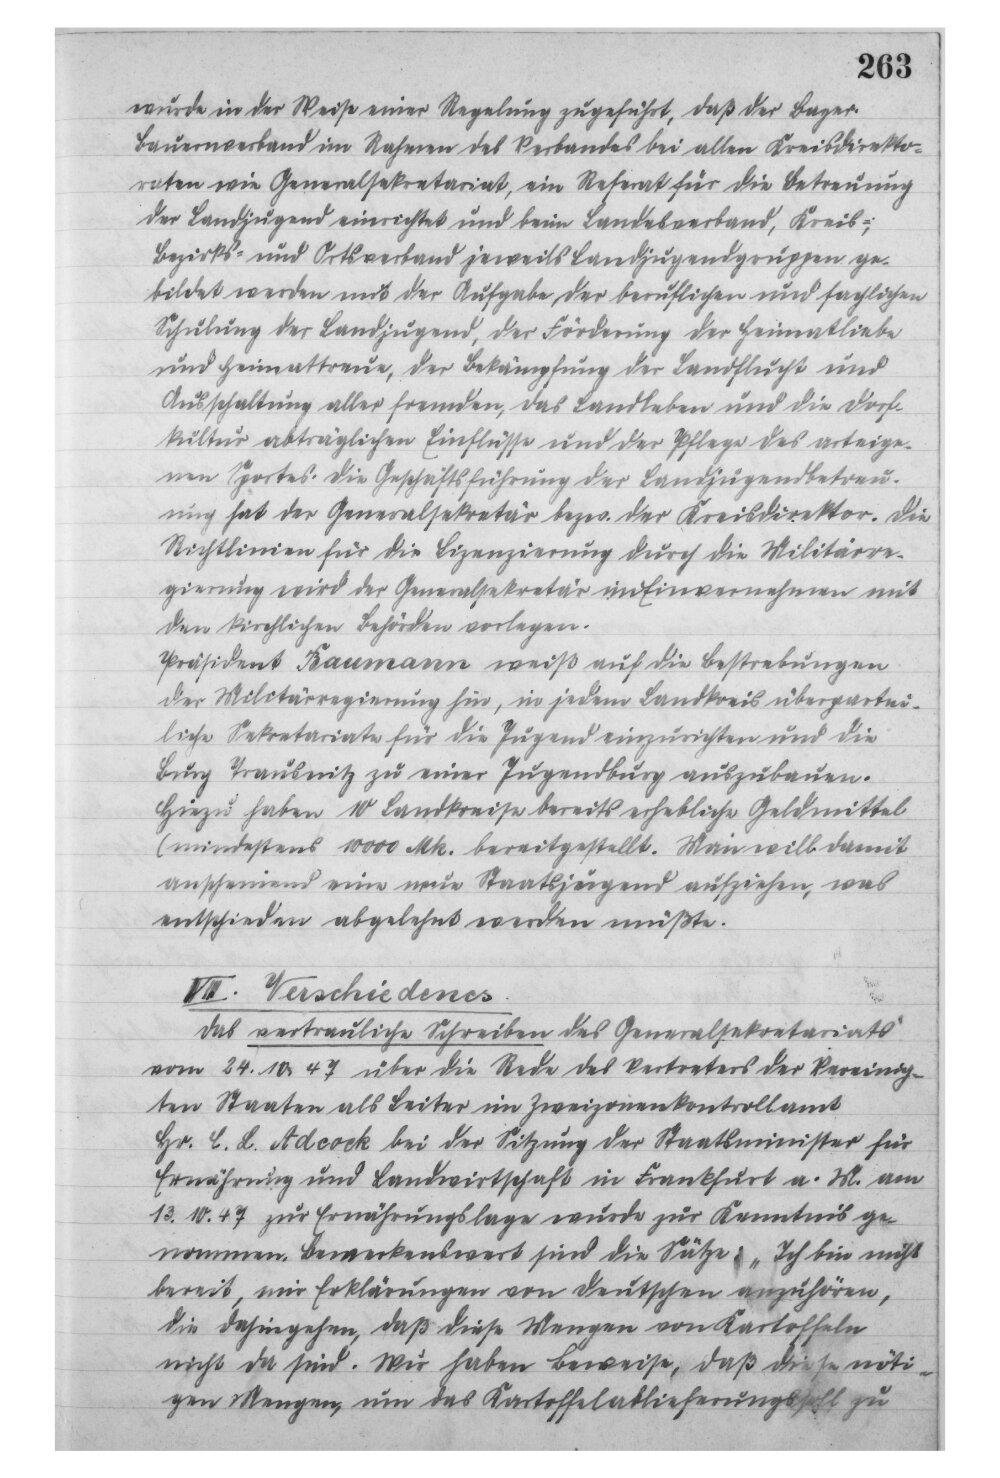 263
wurde in der Weise einer Regelung zugeführt, daß der Bayer.
Bauernverband im Rahmen des Verbandes bei allen Kreisdirekto-
raten wie Generalsekretariat, ein Referat für die Betreuung
der Landjugend einrichtet und beim Landesverband, Kreis-,
Bezirks- und Ortsverband jeweils Landjugendgruppen ge-
bildet werden mit der Aufgabe der beruflichen und fachlichen
Schulung der Landjugend, der Förderung der Heimatliebe
und Heimattreue, der Bekämpfung der Landflucht und
Ausschaltung aller fremden, das Landleben und die Dorf-
kultur abträglichen Einflüsse und der Pflege des arteige-
nen Sportes. Die Geschäftsführung der Landjugendbetreu-
ung hat der Generalsekretär bezw. der Kreisdirektor. Die
Richtlinien für die Lizenzierung durch die Militärre-
gierung wird der Generalsekretär im Einvernehmen mit
den kirchlichen Behörden vorlegen.
Präsident Baumann weiß auf die Bestrebungen
der Militärregierung hin, in jedem Landkreis überpartei-
liche Sekretariate für die Jugend einzurichten und die
Burg Trausnitz zu einer Jugendburg auszubauen.
Hiezu haben 10 Landkreise bereits erhebliche Geldmittel
(mindestens 10000 Mk. bereitgestellt. Man will damit
anscheinend eine neue Staatsjugend aufziehen, was
entschieden abgelehnt werden müßte.
VIII. Verschiedenes.
Das vertrauliche Schreiben des Generalsekretariats
vom 24. 10. 47 über die Rede des Vertreters der Vereinig-
ten Staaten als Leiter im Zweizonenkontrollamt
Hr. C. L. Adcock bei der Sitzung der Staatsminister für
Ernährung und Landwirtschaft in Frankfurt a. M. am
13. 10. 47 zur Ernährungslage wurde zur Kenntnis ge-
nommen. Bemerkenswert sind die Sätze: „Ich bin nicht
bereit, mir Erklärungen von Deutschen anzuhören,
die dahingehen, daß diese Mengen von Kartoffeln
nicht da sind. Wir haben Beweise, daß diese nöti-
gen Mengen, um das Kartoffelablieferungssoll zu